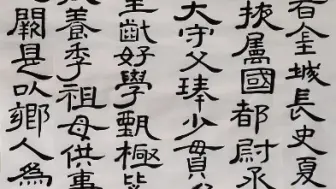 者金城長史夏
掖屬國都尉丞
大守父琫少貫
童齔好學甄極
養季祖母供事
闕是以鄉人為